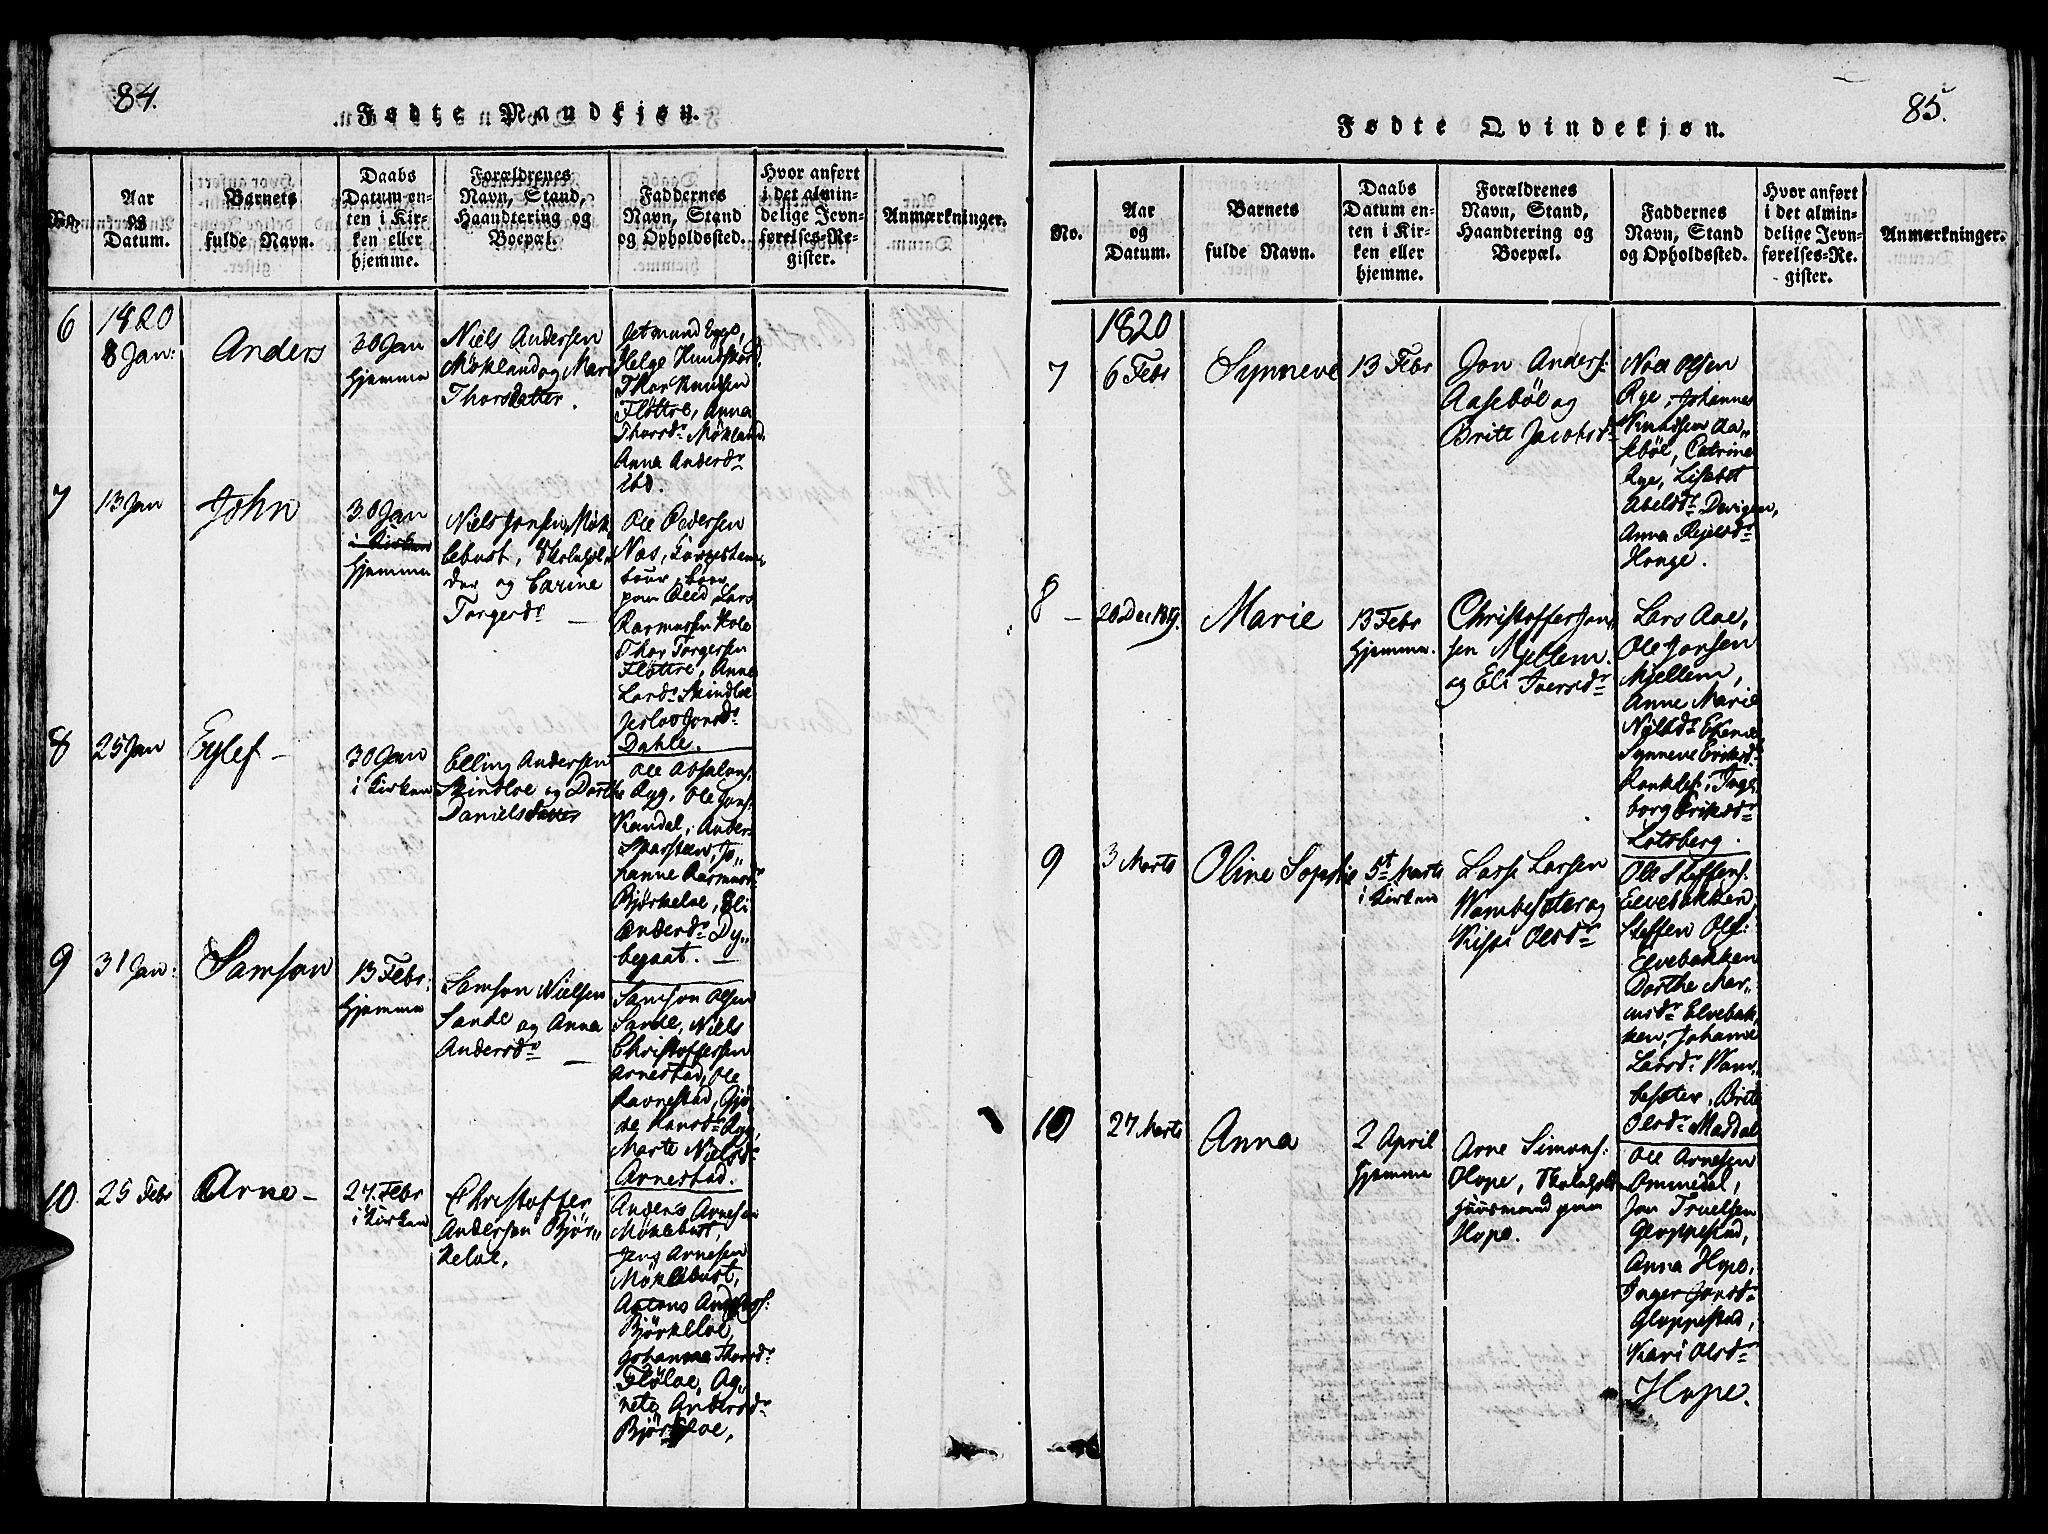 84.
Fødte Mandkjøn.
No.
Aar
og
Datum.
Barnets
fulde Navn.
Daabs
Datum en-
ten i Kir-
ken eller
hjemme.
Forældrenes
Navn, Stand,
Haandtering og
Boepæl.
Faddernes
Navn, Stand
og Opholdssted.
Hvor anført
i det almin-
delige Jevn-
førelses-Re-
gister.
Anmærkninger.
6
1820
8 Jan:
Anders
30 Jan
Hjemme
Niels Andersen
Mökland og Mari
Thorsdatter.
Jetmund Egge,
Helge Hundskord,
Thor Knudsen
Flöttre, Anna
Thorsdr Mökland
Anna Andersdr
Ebd.
7
13 Jan
John
30 Jan
i Kirken
Hjemme
Niels Jonsen Mök
lebust, Skolehol
der og Carine
Torgersdr
Ole Pedersen
Næs,
Rasmussen Hole
Thor Torgersen
Flöttre, Anne
Larsdr Skindloe
Jonsdr
Dahle.
8
25 Jan
Eylef –
30 Jan
i Kirken
Elling Andersen
Skindloe og Dorthe
Danielsdatter
Ole Absalons:
Ryg, Ole Jons:
Kandal, Anders
Skarsteen, Jo„
hanne Rasmusdr
Björkeloe, Eli
Andersdr Dy„
begaat. –
9
31 Jan:
Samson
13 Febr:
Hjemme
Samson Nielsen
Sande og Anna
Andersdr –
Samson Olsen
Sande, Niels
Christoffersen
Arnestad, Ole
Ravnestad, Gjö„
de Hansdr Ryg,
Marte Nielsdr
Arnestad.
10
25 Febr
Arne –
27. Febr
i Kirken
Christoffer
Andersen Björ„
keloe,
Anders Arnesen
Möklebust,
Jens Arnesen
Möklebust,
Antons Anders:
Björkeloe,
Johanna Thorsdr
Flöloe, Ag„
nete Andersdr
Björkeloe,
85.
Fødte Qvindekjøn.
No.
Aar
og
Datum.
Barnets
fulde Navn.
Daabs
Datum en-
ten i Kir-
ken eller
hjemme.
Forældrenes
Navn, Stand,
Haandtering og
Boepæl.
Faddernes
Navn, Stand
og Opholdssted.
Hvor anført
i det almin-
delige Jevn-
førelses-Re-
gister.
Anmærkninger.
1820
7
6 Febr
Synneve
13 Febr
Jon Anders:
Aaseböe og
Brite Jacobsdr
Noa Olsen
Rye, Johannes
Knudsen Aa„
seböe, Catrine
Rye, Lisabet
Abelsdr Devigen,
Anna Rejelsdr
Honge.
8 –
20 Dec 1819.
Marie
13 Febr
Hjemme.
Christoffer Jon„
sen Mjellem.
og Eli Iversdr
Lars Aae,
Ole Jonsen
Mjellem,
Anne Marie
Nielsdr Ekene,
Synneve Eriksdr
Inge
borg Eriksdr
Lotsberg.
9
3 Marts
Oline Sophie
5t Marts
i Kirken
Lasse Larsen
Wambesæter og
Kisti Olsdr
Ole Steffens:
Elvebakken,
Steffen Ols:
Elvebakken
Dorthe Mar„
Elvebak
ken, Johanne
Larsdr Wam„
besæter, Brite
Olsdr Maddal
10
27 Marts
Anna
2 April
Hjemme
Arne Simons:
Hope, Skolehold
Huusmand paa
Hope.
Ole Arnesen
Ommedal,
Jon Truelsen
Gloppestad,
Anna Hope,
Inger Jonsdr
Gloppestad,
Kari Olsdr
Hope.